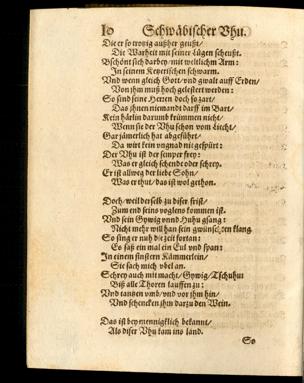 10 Schwäbischer Vhu.
Die er so trotzig außher geußt/
Die Warheit mit seiner Lügen scheußt.
Bschönt sich darbey/mit weltlichm Arm:
In seinem Ketzerischen schwarm.
Vnd wenn gleich Gott/vnd gwalt auff Erden/
Von ihm muß hoch gelestert werden:
So sind seine Herren doch so zart/
Das ihnen niemandt darff im Bart/
Kein härlin darumb krümmen nicht/
Wenn sie der Vhu schon vom
Gar jämerlich hat abgeführt/
Da wirt kein vngnad mit gespürt:
Der Vhu ist der semper frey:
Was er gleich schendt oder schrey.
Er ist allweg der liebe Sohn/
Was er thut/das ist wol gethon.
Doch/weil derselb zu diser frist/
Zum end seins voglens kommen ist.
Vnd sein Gywig vnnd Huhu gsang:
Nicht mehr will han sein gwünschten klang
So sing er nuh diß zeit fortan:
Es saß ein mal ein Eul vnd span:
In einem finstern Kämmerlein/
Sie sach mich vbel an.
Schrey auch mit macht/Gywig/Tschuhu
Biß alle Thoren lauffen zu:
Vnd tantzen vmb/vnd vor ihm hin/
Vnd schencken ihm darzu den Wein.
Das ist bey mennigklich bekannt/
Als diser Vhu kam ins land.
So